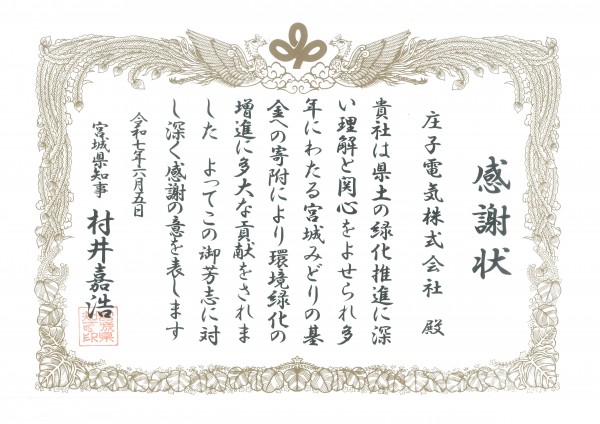 感謝状
庄子電気株式会社 殿
貴社は県土の緑化推進に深
い理解と関心をよせられ多
年にわたる宮城みどりの基
金への寄附により環境緑化の
増進に多大な貢献をされま
した よってこの御芳志に対
し深く感謝の意を表します
令和七年六月五日
宮城県知事 村井嘉浩